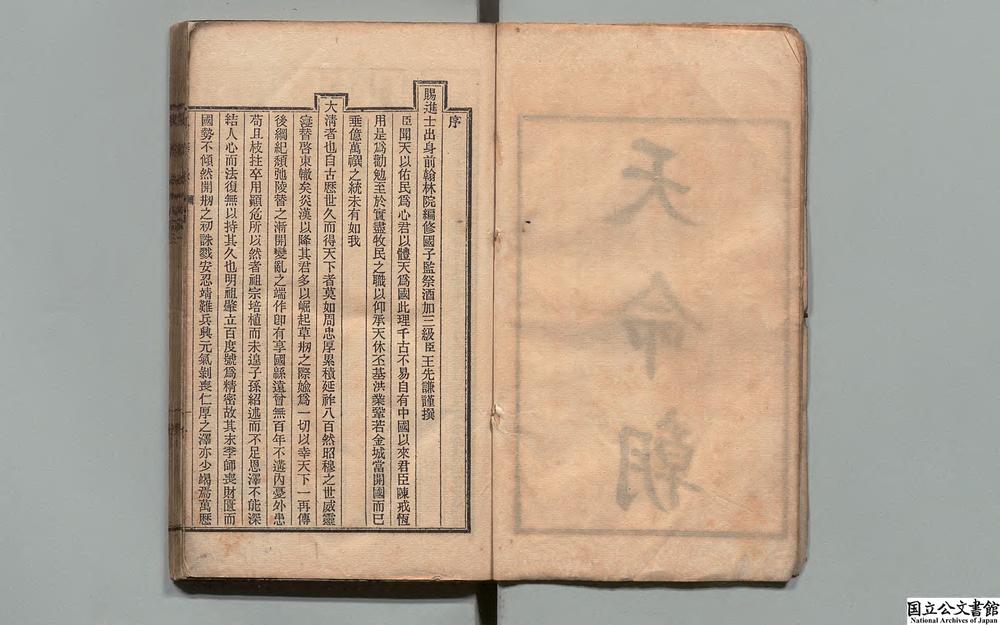 天命朝
序
賜進士出身前翰林院編修國子監祭酒加三級臣王先謙謹撰
臣聞天以佑民爲心君以體天爲國此理千古不易自有中國以來君臣陳戒恆
用是爲勸勉至於實盡牧民之職以仰承天休丕基洪業鞏若金城當開國而已
垂億萬禩之統未有如我
大淸者也自古歷世久而得天下者莫如周忠厚累積延祚八百然昭穆之世威靈
寖替啓東轍矣炎漢以降其君多以崛起草刱之際媮爲一切以幸天下一再傳
後綱紀頹弛陵替之漸開變亂之端作卽有享國緜遠曾無百年不遘內憂外患
苟且枝拄卒用顚危所以然者祖宗培植而未遑子孫紹述而不足恩澤不能深
結人心而法復無以持其久也明祖肈立百度號爲精密故其末季師喪財匱而
國勢不傾然開刱之初誅戮安忍靖難兵興元氣剝喪仁厚之澤亦少竭焉萬歷
国立公文書館
National Archives of Japan